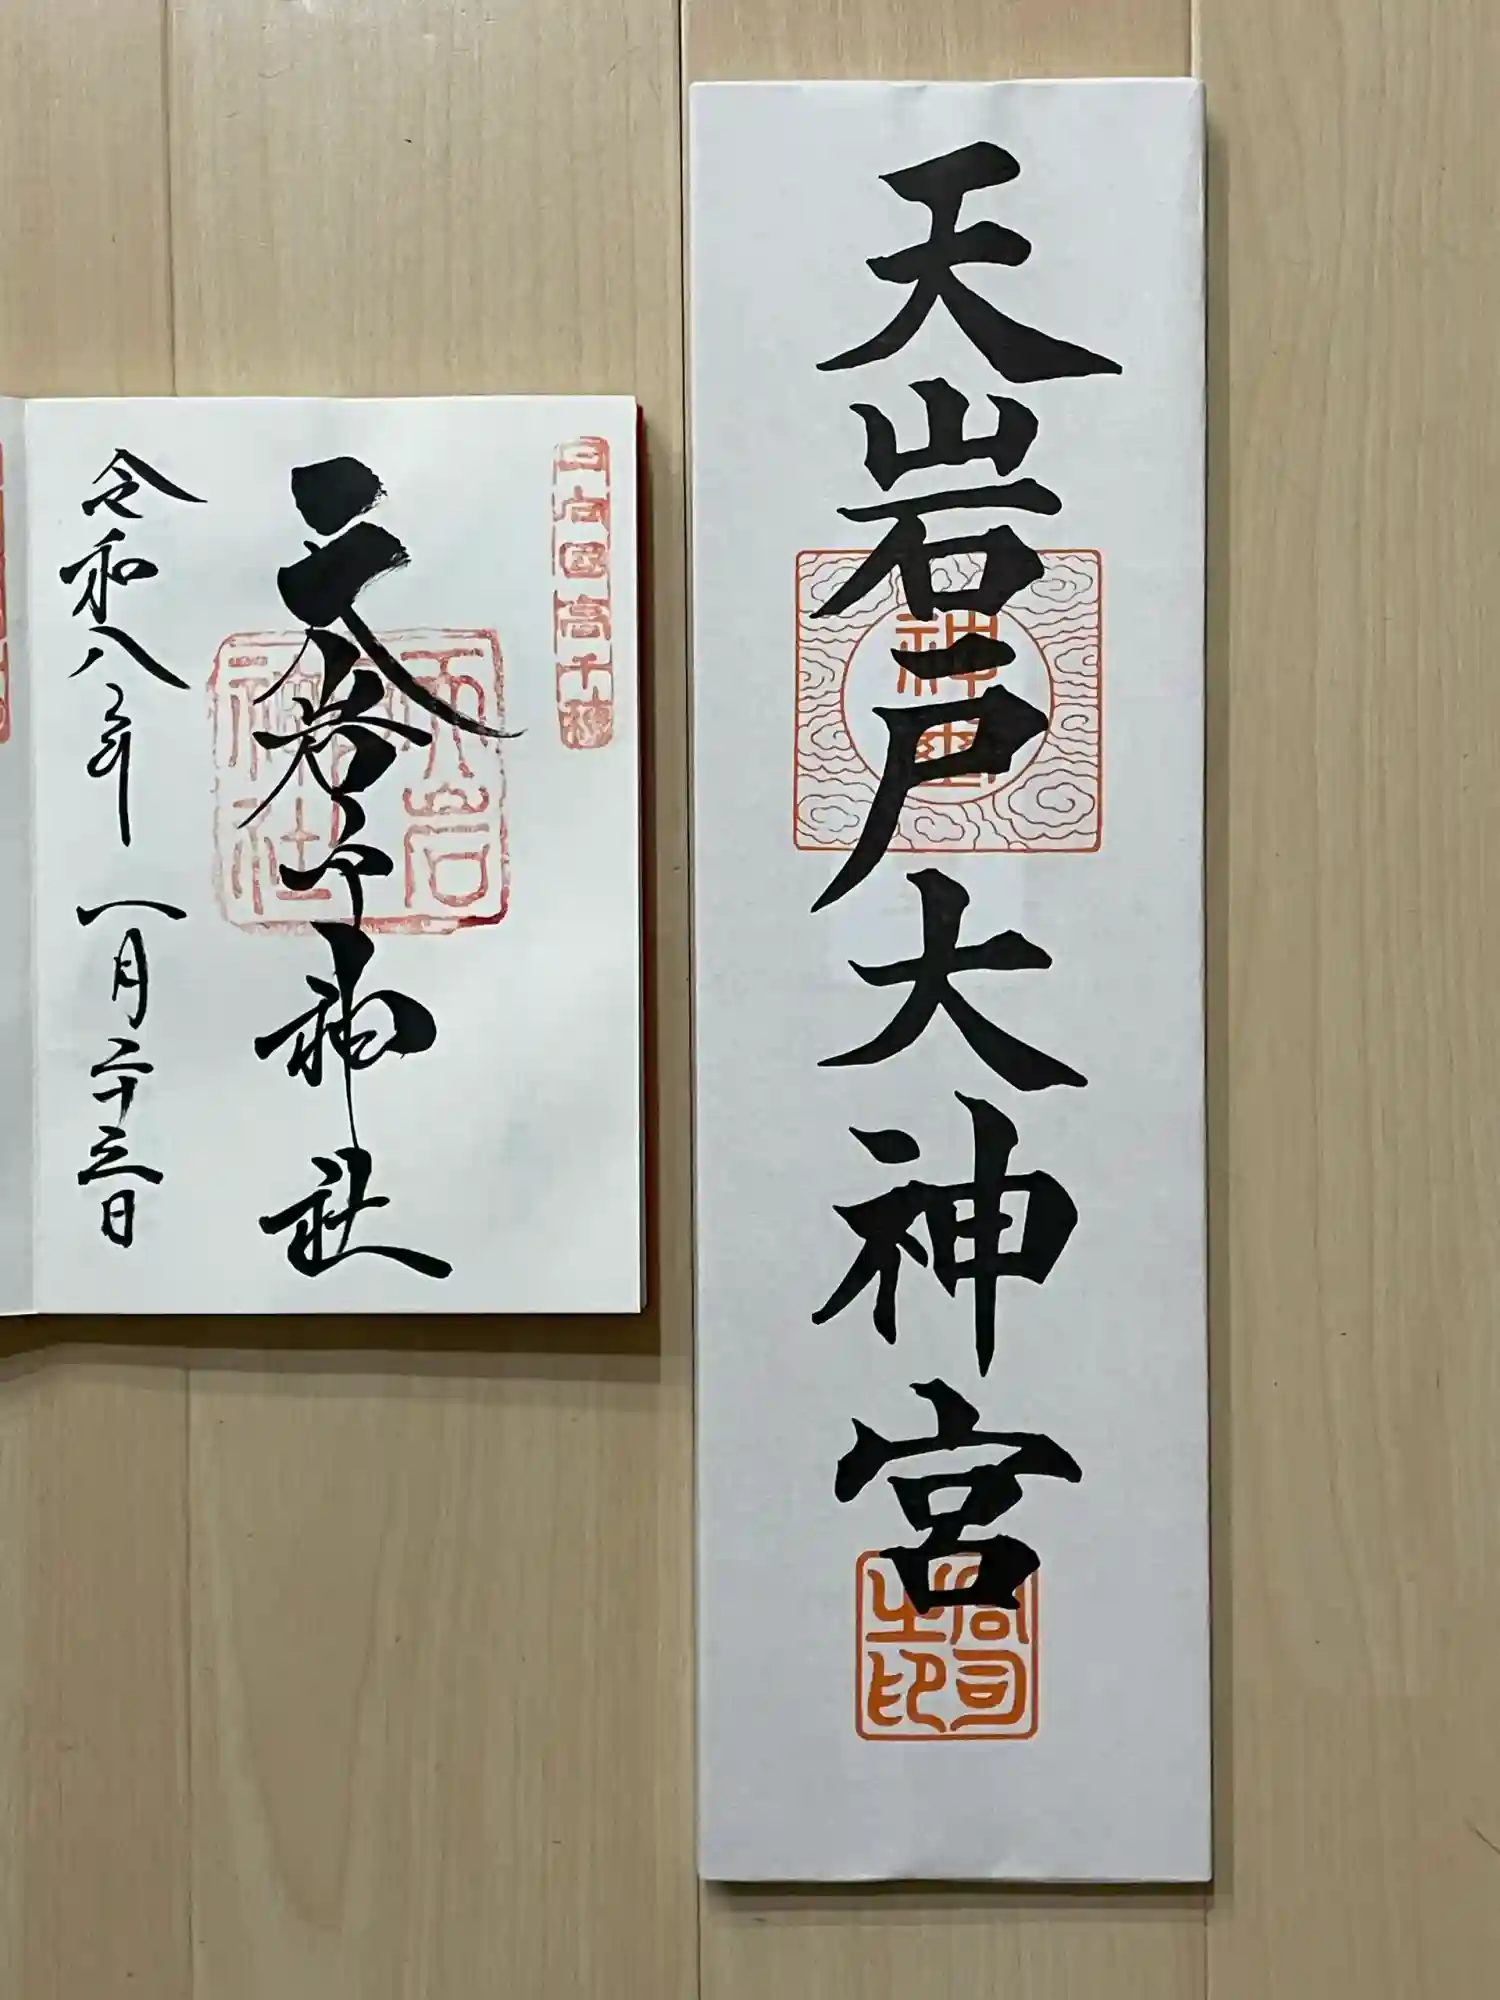 天岩戸大神宮
神璽
宮司之印
日向国高千穂
天岩戸神社
天岩神社
令和八年 一月二十三日